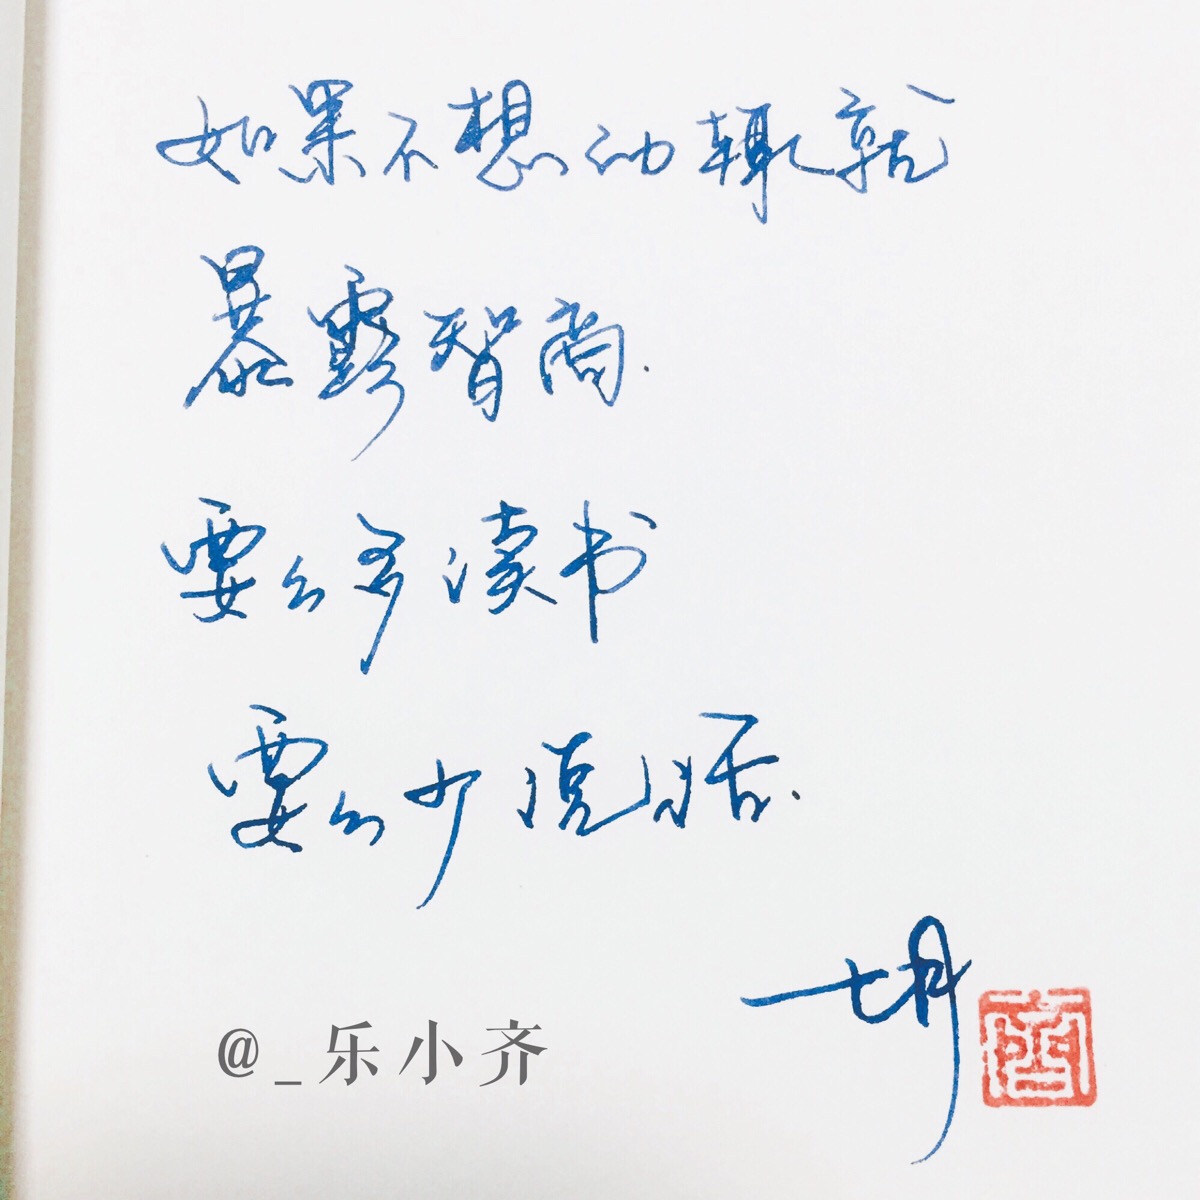 如果不想动辄就
暴露智商.
要么多读书
要么少说话.
七月
@_乐小齐